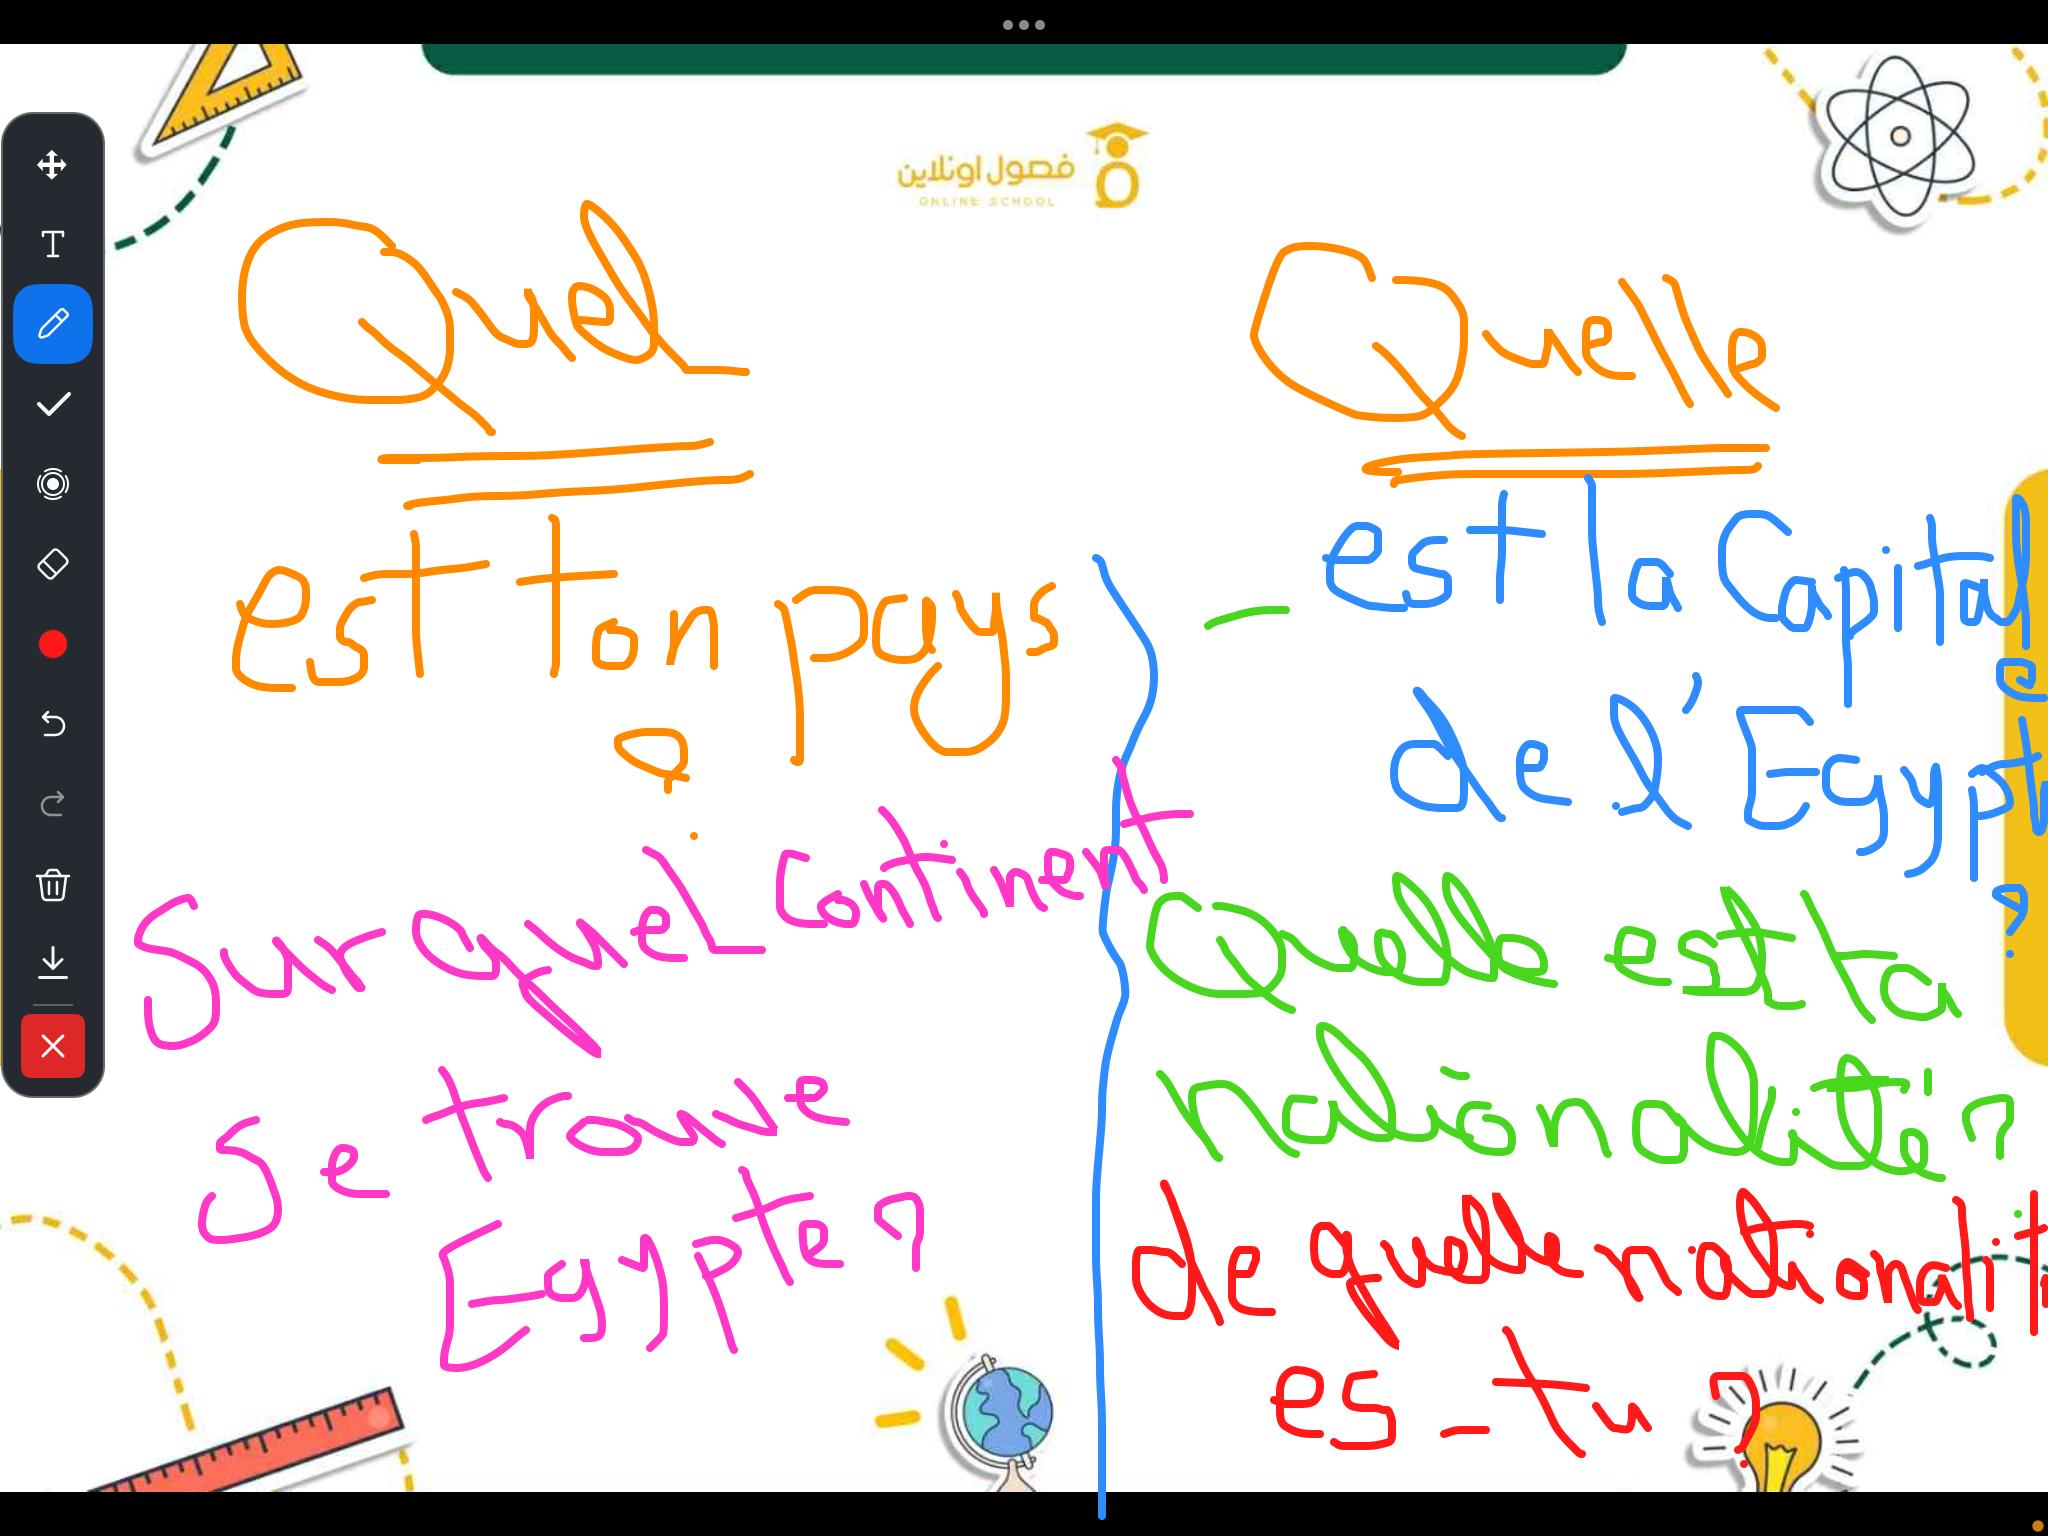 فصول اونلاين
ONLINE SCHOOL
Quel
est ton pays
?
Sur quel Continent
se trouve
Egypte?
Quelle
- est la Capitale
de l'Egypte
?
Quelle est ta
nationalité?
de quelle nationalit
es-tu?